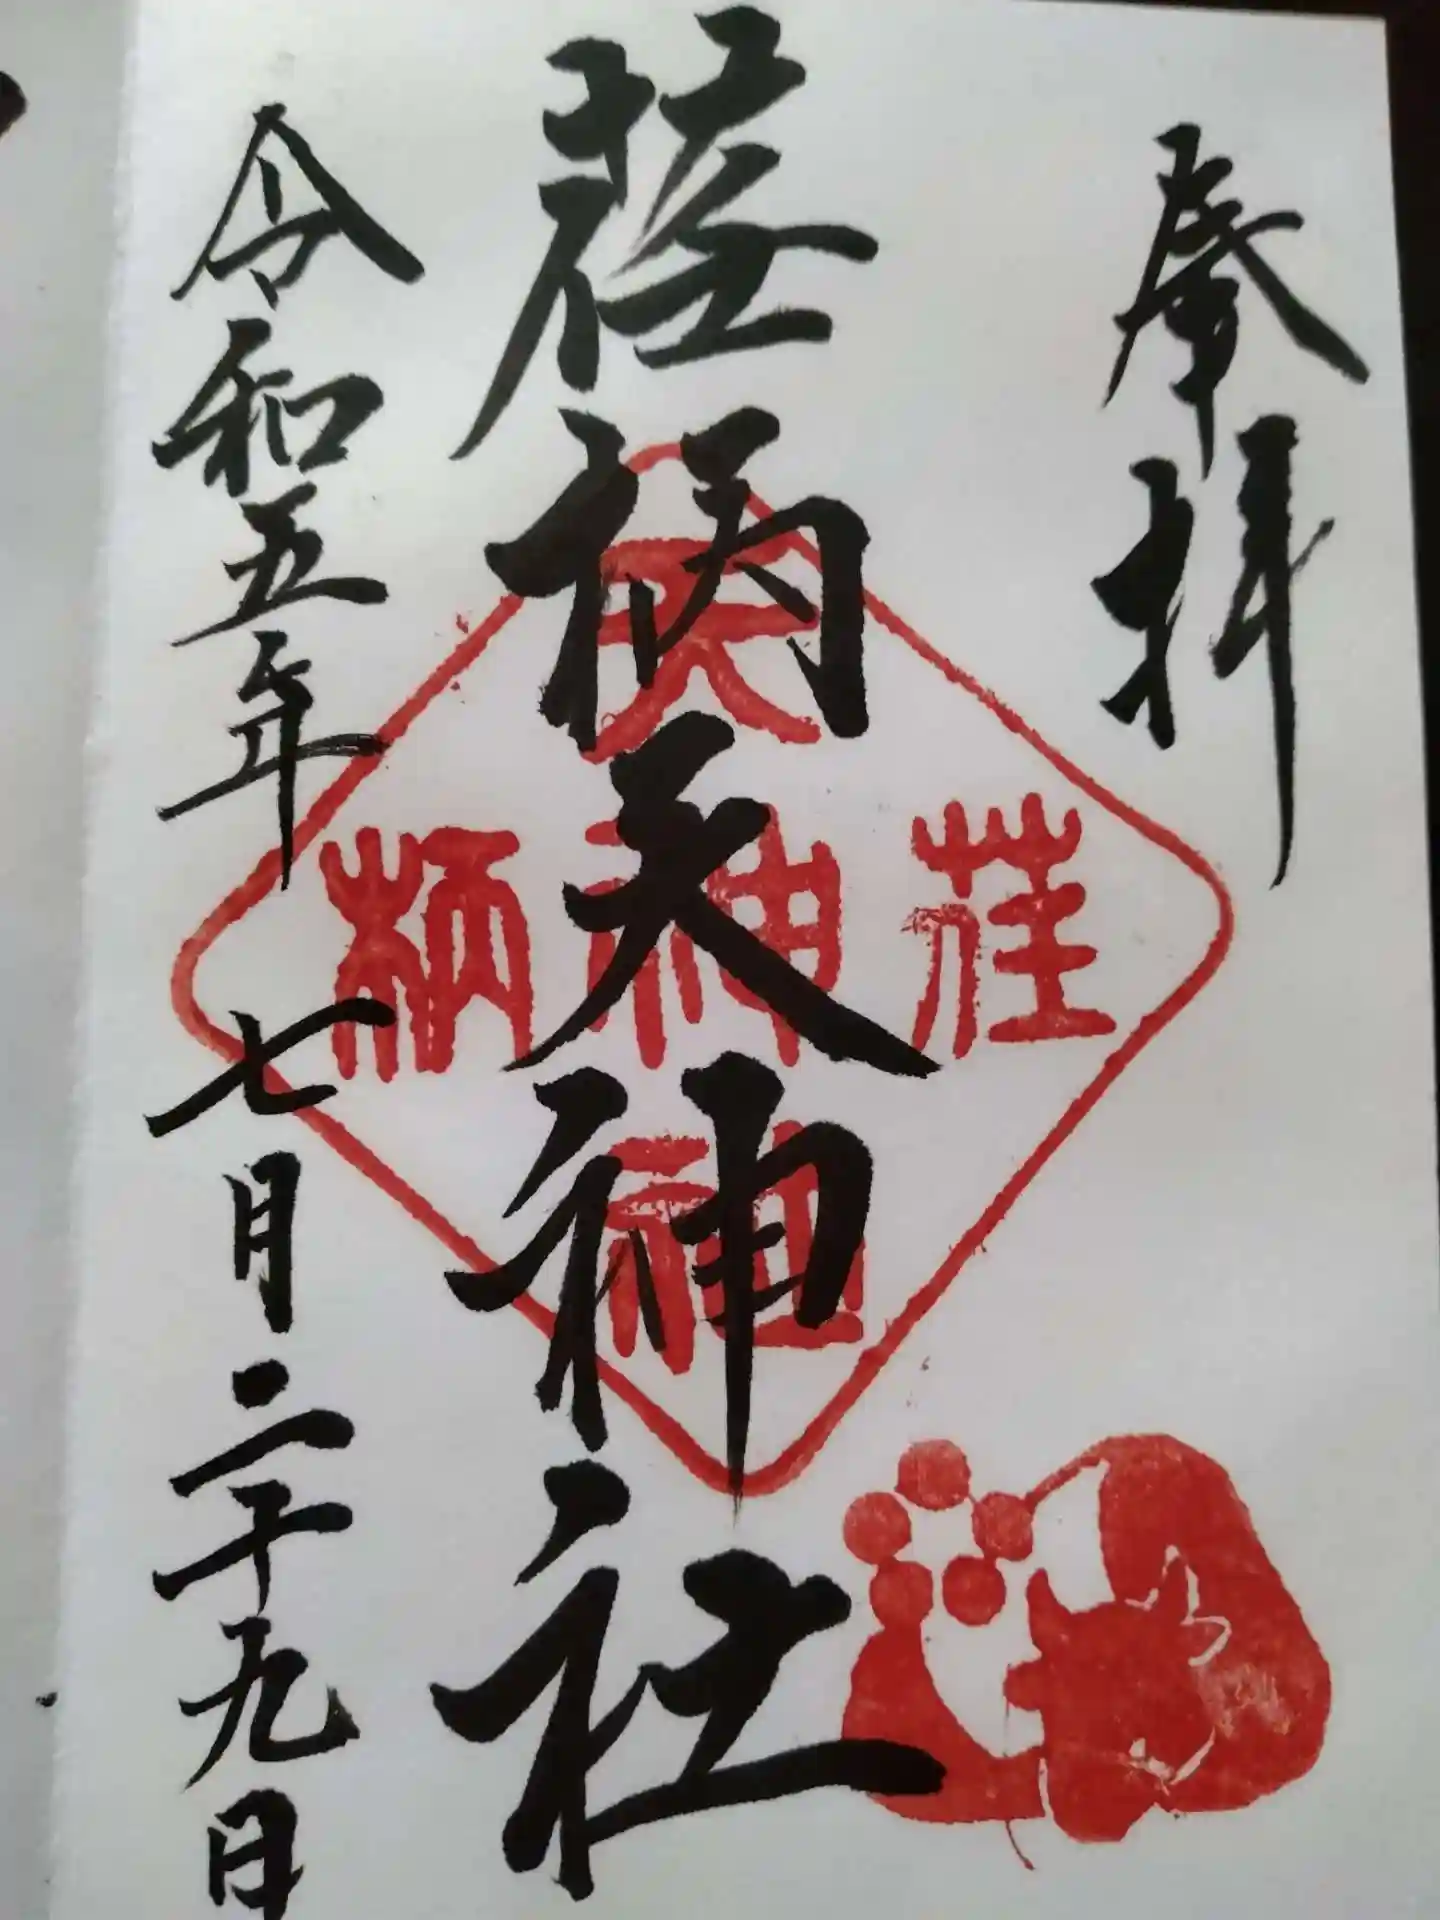 奉拝
荏柄天神社
令和五年七月二十九日
天
荏神柄
社